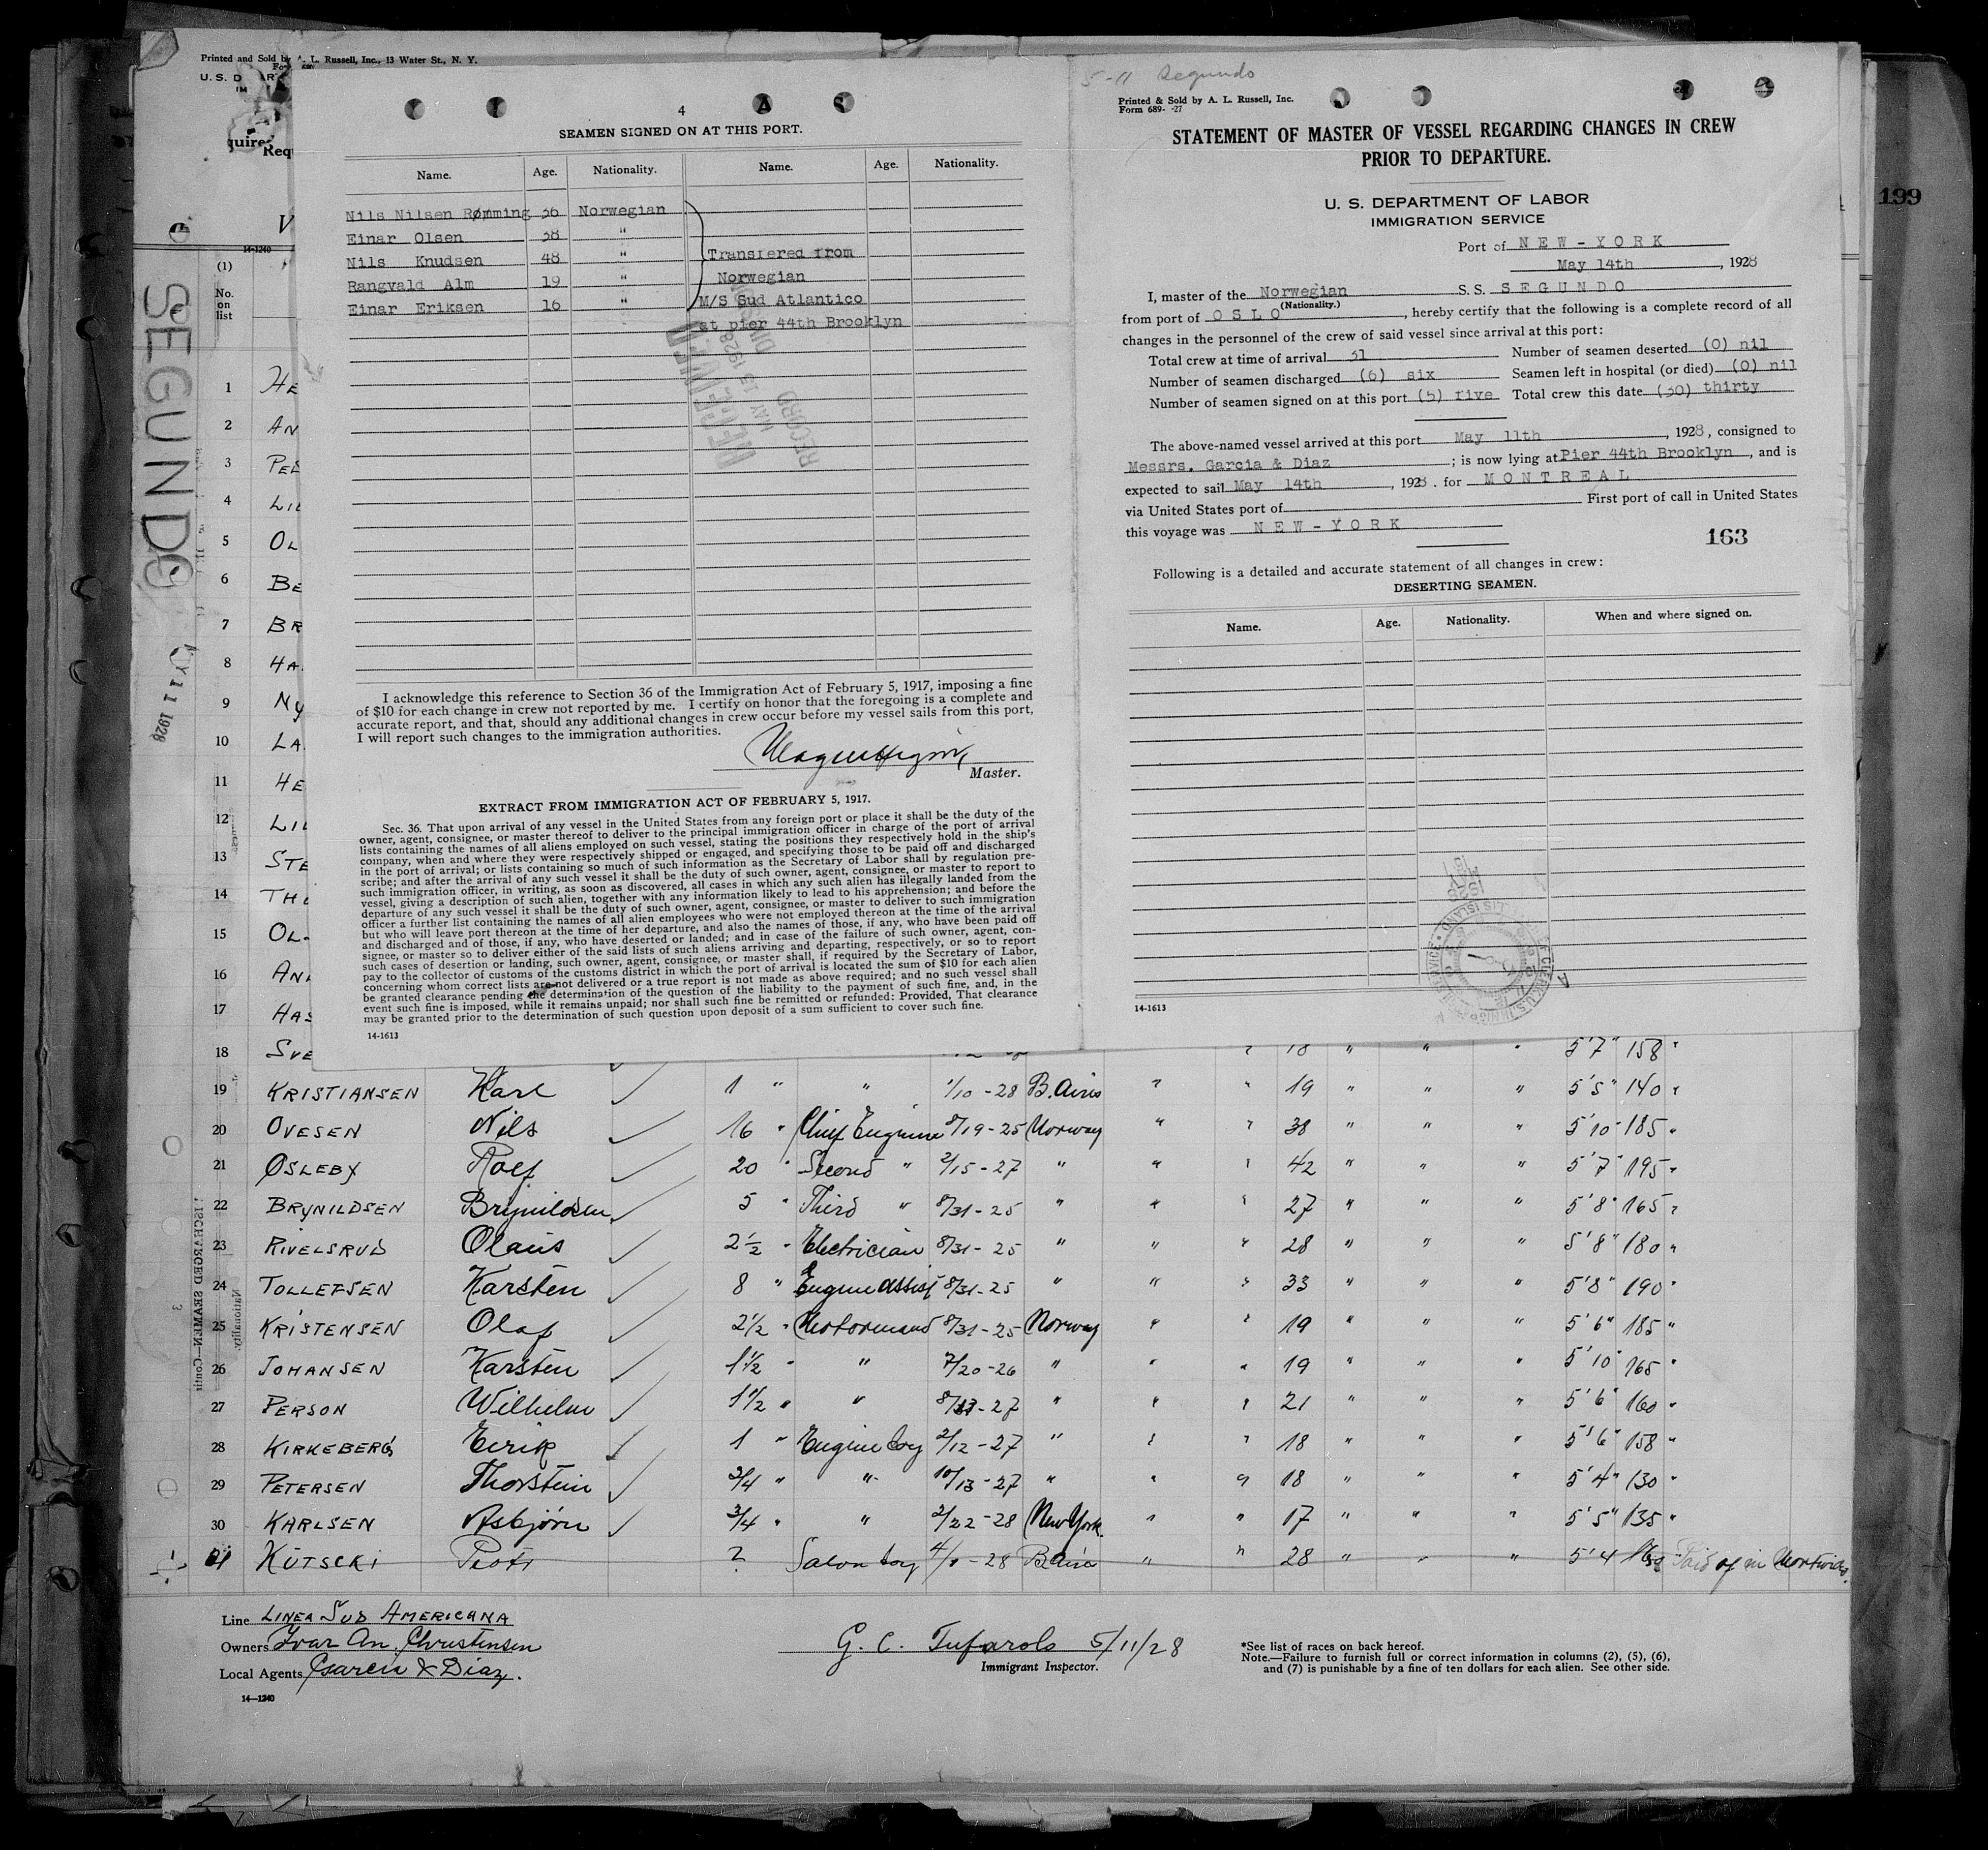 Printed and Sold by A. L. Russell, Inc., 13 Water St., N. Y.
U. S. D
IM
quire
Requ
V
14-1240
(1)
No.
on
list
SEGUNDO
Y 11 1928
199
1 HE
2 AN
3 PED
4 LIL
5 OL
6 BE
7 BR
8 HA
9 NY
10 LA
11 HE
12 LIL
13 STE
14 THO
15 OL
16 AN
17 HAS
18 SVE
4
SEAMEN SIGNED ON AT THIS PORT.
Name. Age. Nationality. Name. Age. Nationality.
Nils Nilsen Rømming 36 Norwegian
Einar Olsen 38 "
Nils Knudsen 48 " Transfered from
Rangvald Alm 19 " Norwegian
Einar Eriksen 16 " M/S Sud Atlantico
at pier 44th Brooklyn
RECEIVED
MAY 15 1928
RECORD DIVISION
I acknowledge this reference to Section 36 of the Immigration Act of February 5, 1917, imposing a fine
of $10 for each change in crew not reported by me. I certify on honor that the foregoing is a complete and
accurate report, and that, should any additional changes in crew occur before my vessel sails from this port,
I will report such changes to the immigration authorities.
Master.
EXTRACT FROM IMMIGRATION ACT OF FEBRUARY 5, 1917.
Sec. 36. That upon arrival of any vessel in the United States from any foreign port or place it shall be the duty of the
owner, agent, consignee, or master thereof to deliver to the principal immigration officer in charge of the port of arrival
lists containing the names of all aliens employed on such vessel, stating the positions they respectively hold in the ship's
company, when and where they were respectively shipped or engaged, and specifying those to be paid off and discharged
in the port of arrival; or lists containing so much of such information as the Secretary of Labor shall by regulation pre-
scribe; and after the arrival of any such vessel it shall be the duty of such owner, agent, consignee, or master to report to
such immigration officer, in writing, as soon as discovered, all cases in which any such alien has illegally landed from the
vessel, giving a description of such alien, together with any information likely to lead to his apprehension; and before the
departure of any such vessel it shall be the duty of such owner, agent, consignee, or master to deliver to such immigration
officer a further list containing the names of all alien employees who were not employed thereon at the time of the arrival
but who will leave port thereon at the time of her departure, and also the names of those, if any, who have been paid off
and discharged and of those, if any, who have deserted or landed; and in case of the failure of such owner, agent, con-
signee, or master so to deliver either of the said lists of such aliens arriving and departing, respectively, or so to report
such cases of desertion or landing, such owner, agent, consignee, or master shall, if required by the Secretary of Labor,
pay to the collector of customs of the customs district in which the port of arrival is located the sum of $10 for each alien
concerning whom correct lists are not delivered or a true report is not made as above required; and no such vessel shall
be granted clearance pending the determination of the question of the liability to the payment of such fine, and, in the
event such fine is imposed, while it remains unpaid; nor shall such fine be remitted or refunded: Provided, That clearance
may be granted prior to the determination of such question upon deposit of a sum sufficient to cover such fine.
14-1613
5-11 Segundo
Printed & Sold by A. L. Russell, Inc.
Form 689- -27
STATEMENT OF MASTER OF VESSEL REGARDING CHANGES IN CREW
PRIOR TO DEPARTURE.
U. S. DEPARTMENT OF LABOR
IMMIGRATION SERVICE
Port of NEW-YORK
May 14th, 1928
I, master of the Norwegian S. S. SEGUNDO
(Nationality.)
from port of OSLO, hereby certify that the following is a complete record of all
changes in the personnel of the crew of said vessel since arrival at this port:
Total crew at time of arrival 31 Number of seamen deserted (0) nil
Number of seamen discharged (6) six Seamen left in hospital (or died) (0) nil
Number of seamen signed on at this port (5) five Total crew this date (30) thirty
The above-named vessel arrived at this port May 11th, 1928, consigned to
Messrs. Garcia & Diaz; is now lying at Pier 44th Brooklyn, and is
expected to sail May 14th, 1928. for MONTREAL
via United States port of First port of call in United States
this voyage was NEW-YORK
163
Following is a detailed and accurate statement of all changes in crew:
DESERTING SEAMEN.
Name. Age. Nationality. When and where signed on.
14-1613
18 " " " 5'7" 158 "
19 KRISTIANSEN Karl 1 " " 1/10-28 B.Aires " " 19 " " " 5'5" 140 "
20 OVESEN Nils 16 " Chief Engineer 8/19-25 Norway " " 38 " " " 5'10" 185 "
21 ØSLEBY Rolf 20 " Second " 2/15-27 " " " 42 " " " 5'7" 195 "
22 BRYNILDSEN Brynildsen 5 " Third " 8/31-25 " " " 27 " " " 5'8" 165 "
23 RIVELSRUD Olaus 2½ " Electrician 8/31-25 " " " 28 " " " 5'8" 180 "
24 TOLLEFSEN Karsten 8 " Engine assist 8/31-25 " " " 33 " " " 5'8" 190 "
25 KRISTENSEN Olaf 2½ " Motormand 8/31-25 Norway " " 19 " " " 5'6" 185 "
26 JOHANSEN Karsten 1½ " " 7/20-26 " " " 19 " " " 5'10" 165 "
27 PERSON Wilhelm 1½ " " 8/23-27 " " " 21 " " " 5'6" 160 "
28 KIRKEBERG Eirik 1 " Engine boy 2/12-27 " " " 18 " " " 5'6" 158 "
29 PETERSEN Thorstein 3/4 " " 10/13-27 " " " 18 " " " 5'4" 130 "
30 KARLSEN Asbjørn 3/4 " " 2/22-28 New York " " 17 " " " 5'5" 135 "
31 KUTSCKI Piotr ? Salon boy 28 " " " 5'4 Paid of in
DISCHARGED SEAMEN—Contin
Nationality.
3
Line LINEA SUD AMERICANA
Owners Ivar An. Christensen
Local Agents Garcia & Diaz.
14—1240
G. C. Tufarolo 5/11/28
Immigrant Inspector.
*See list of races on back hereof.
Note.—Failure to furnish full or correct information in columns (2), (5), (6),
and (7) is punishable by a fine of ten dollars for each alien. See other side.